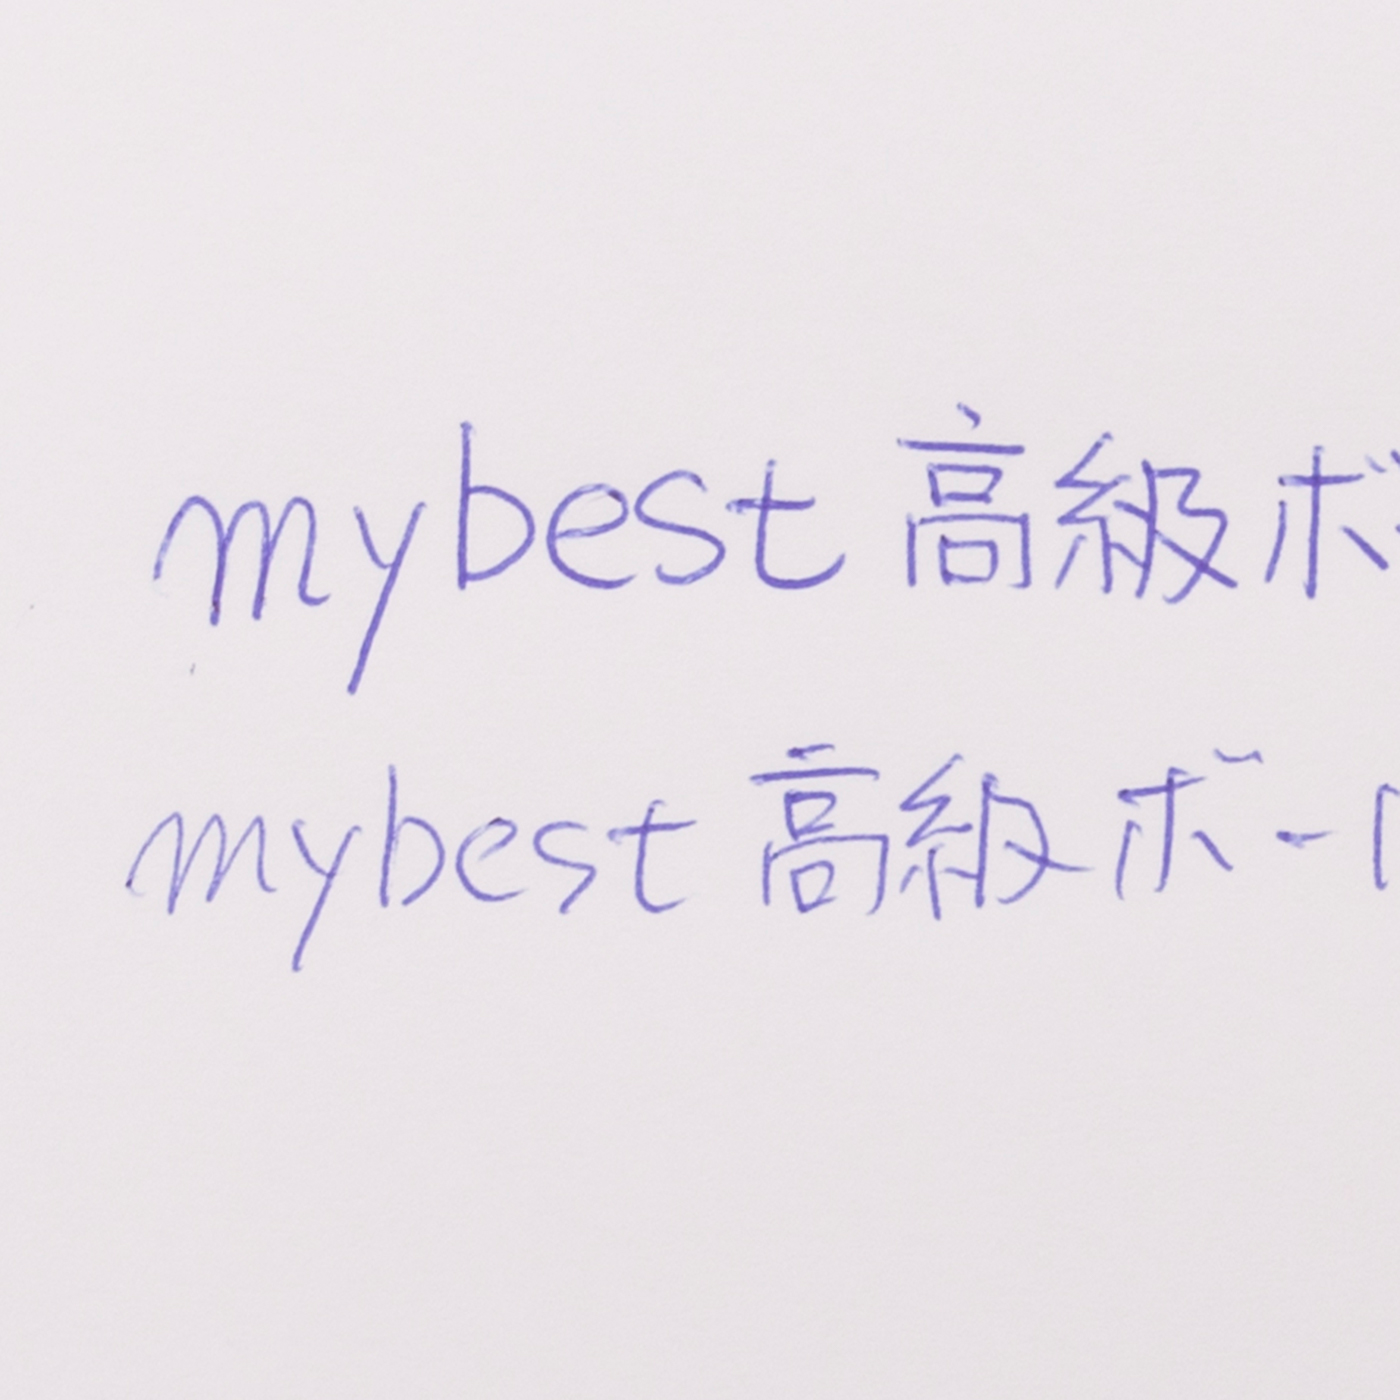 mybest 高級ボ
mybest 高級ボー